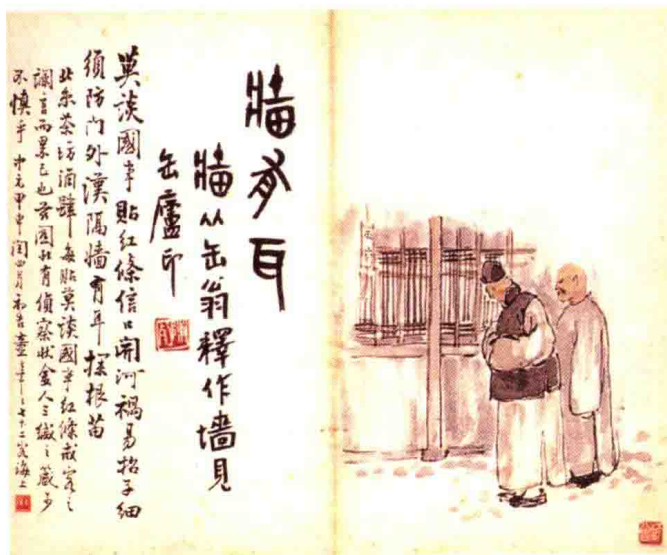 牆有耳
牆从缶翁釋作墻見
缶廬印
莫談國事貼紅條信口開河禍易招子細
須防門外漢隔牆有耳探根苗
北京茶坊酒肆每貼莫談國事紅條戒客之
讕言而累己也 圖 有偵察狀金人三緘之箴可
不慎乎 中元甲申閏四月初吉壺 年七十二客海上